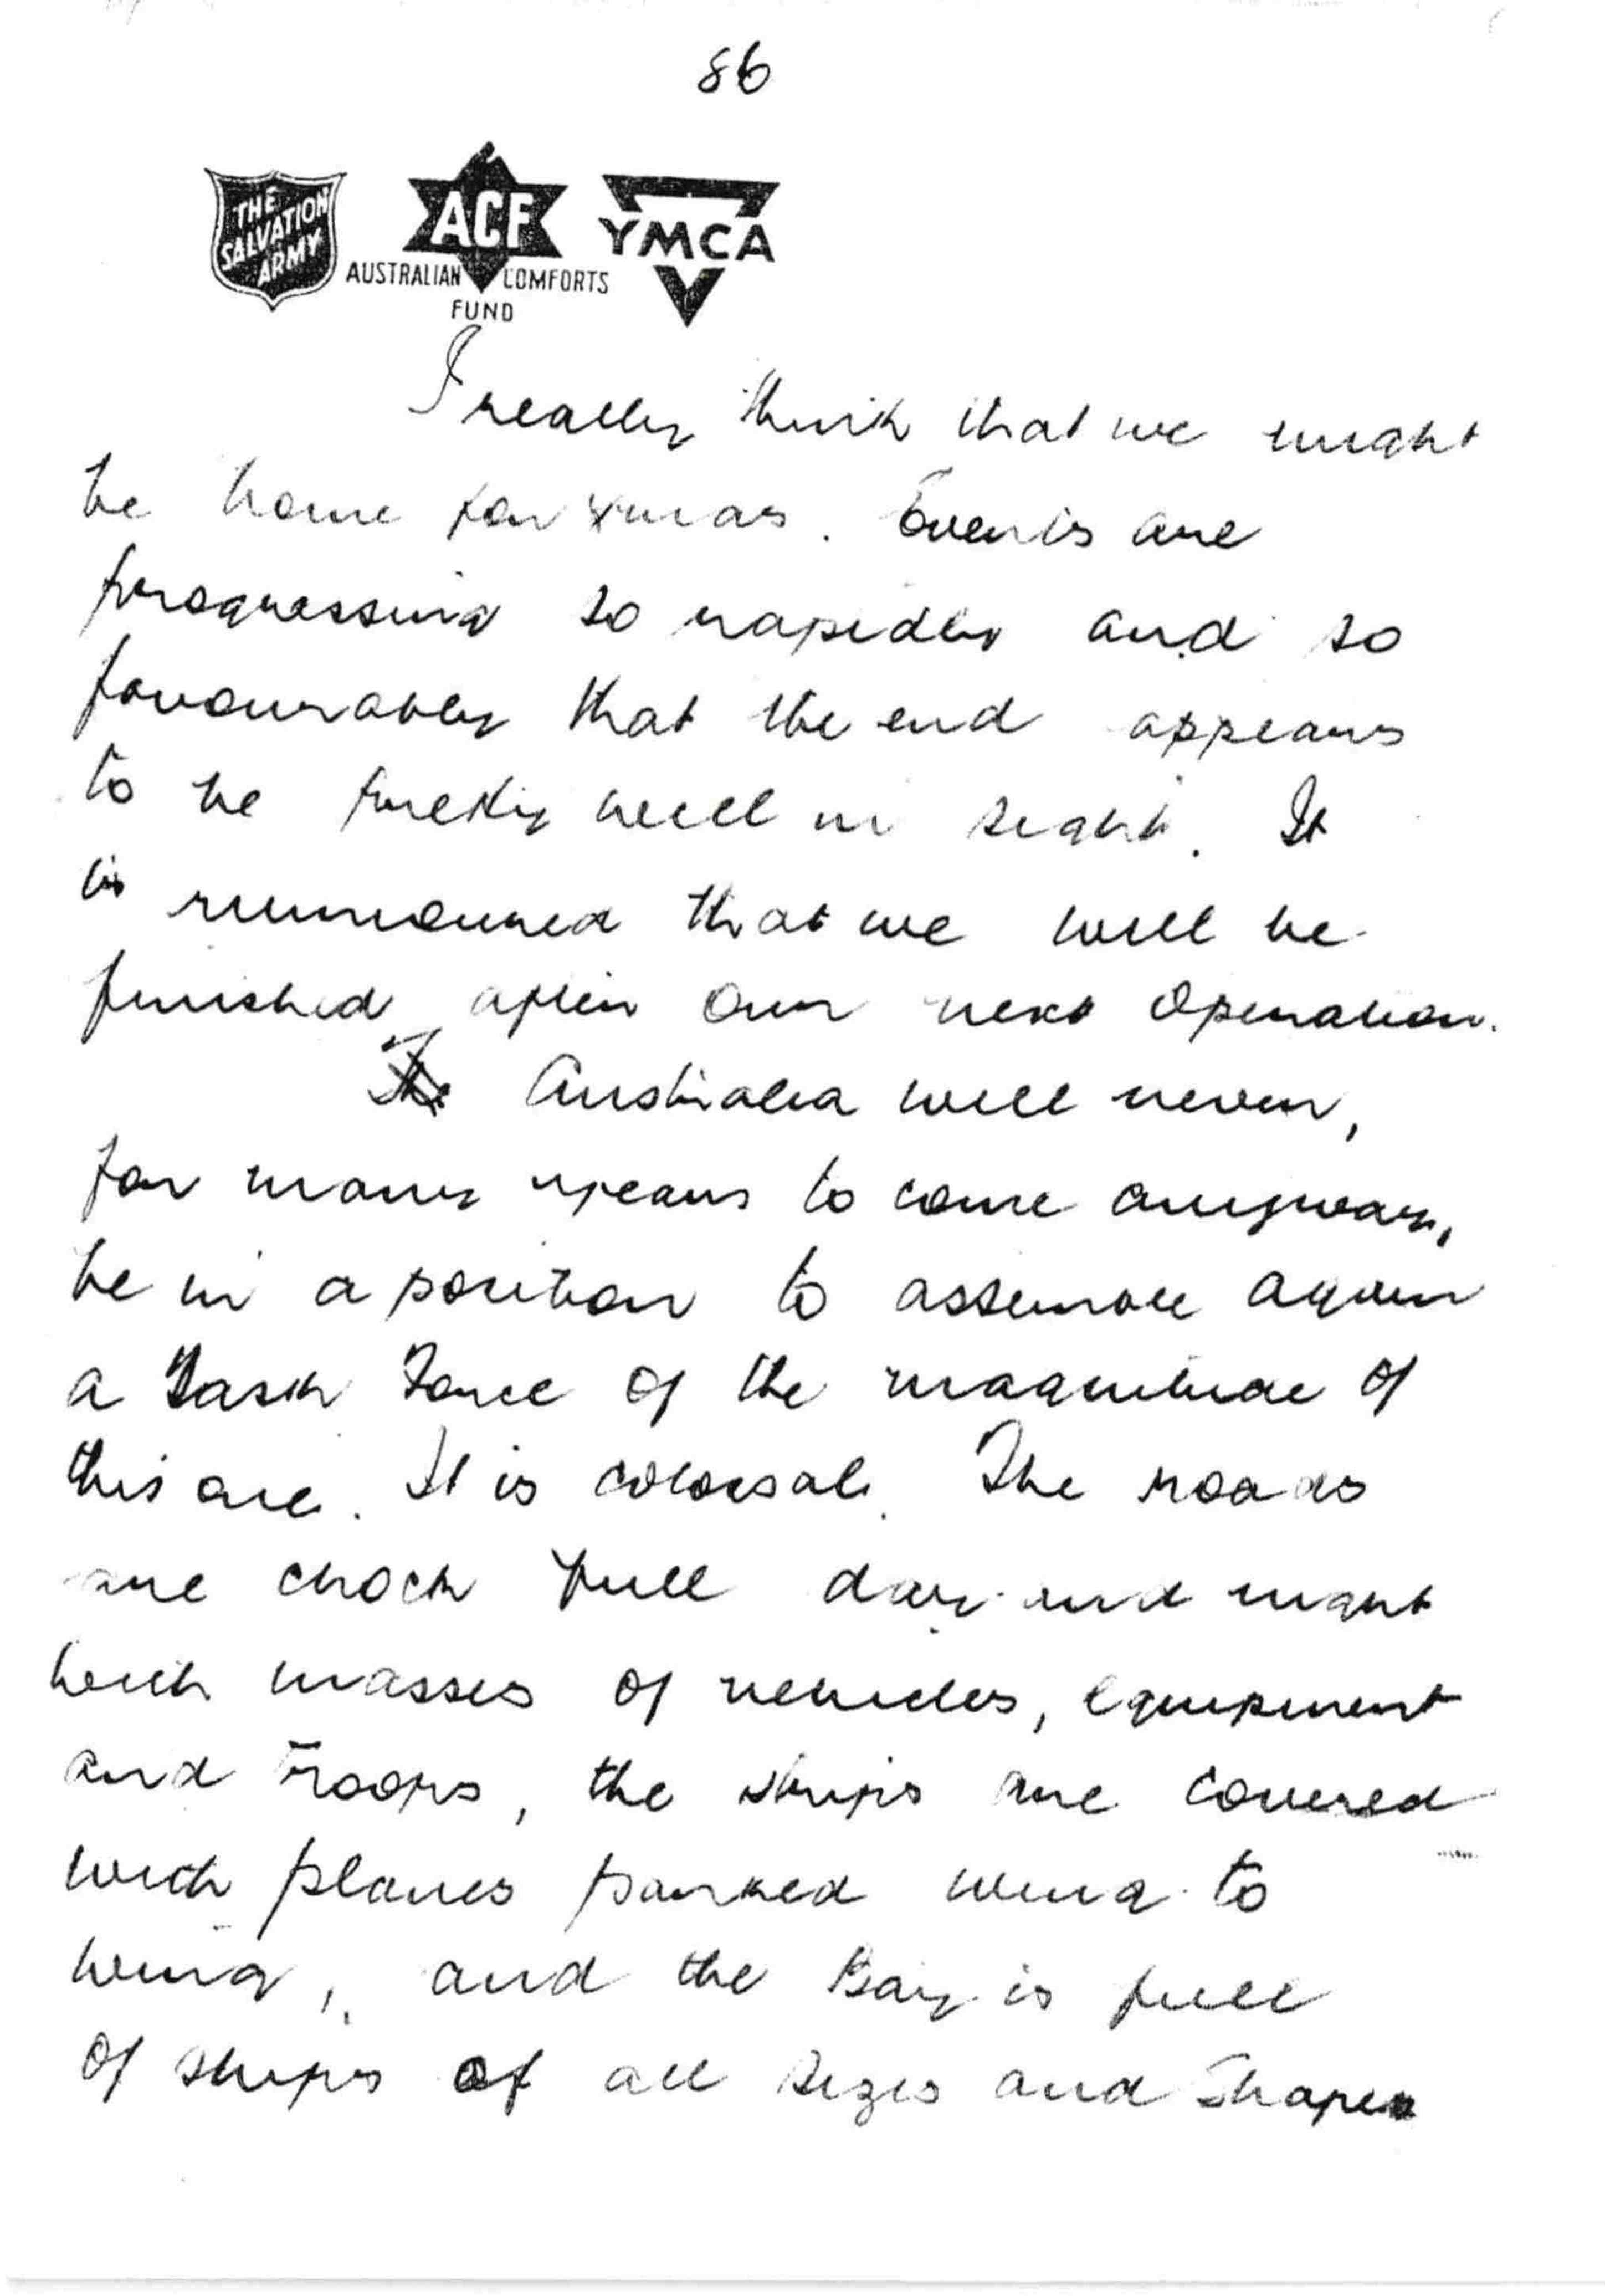 86
THE
SALVATION
ARMY
ACF
AUSTRALIAN COMFORTS
FUND
YMCA
I really think that we might
be home for Xmas. Events are
progressing so rapidly and so
favourably that the end appears
to be pretty well in sight. It
is rumoured that we will be
finished after our next operation.
Australia will never,
for many years to come anyway,
be in a position to assemble again
a Task Force of the magnitude of
this one. It is colossal. The roads
are chock full day and night
with masses of vehicles, equipment
and troops, the strips are covered
with planes parked wing to
wing, and the Bay is full
of ships of all sizes and shapes